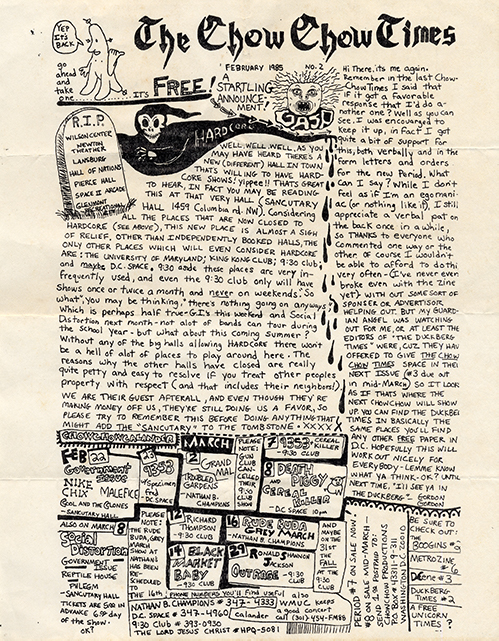 YEP
IT'S
BACK
go
ahead
and
take
one
...IT'S FREE!
The Chow Chow Times
FEBRUARY 1985 NO. 2
A
STARTLING
ANNOUNCE-
MENT!
R.I.P
WILSON CENTER
NEWTON
THEATRE
LANSBURG
HALL OF NATIONS
PIERCE HALL
SPACE II ARCADE
GLENMONT
RECREATION
HARDCORE
WELL, WELL, WELL, AS YOU
MAY HAVE HEARD THERE'S A
NEW (DIFFERENT) HALL IN TOWN
THAT'S WILLING TO HAVE HARD-
CORE SHOWS! Yippee!! THATS GREAT
TO HEAR, IN FACT YOU MAY BE READING
THIS AT THAT VERY HALL (SANCUTARY
HALL 1459 Columbia rd. NW). Considering
ALL THE PLACES THAT ARE NOW CLOSED TO
HARDCORE (SEE ABOVE), THIS NEW PLACE IS ALMOST A SIGH
OF RELIEF. OTHER THAN INDEPENDENTLY BOOKED HALLS, THE
ONLY OTHER PLACES WHICH WILL EVEN CONSIDER HARDCORE
ARE: THE UNIVERSITY OF MARYLAND; KING KONG CLUB; 9:30 club;
and maybe D.C. SPACE. 9:30 aside these places are very in-
frequently used, and even the 9:30 club only will have
Shows once or twice a month and never on weekends. "So
what", you may be thinking, "there's nothing going on anyways."
Which is perhaps half true-G.I's this weekend and Social
Distortion next month-not alot of bands can tour during
the School year - but what about this coming Summer?
Without any of the big halls allowing HARDCORE there won't
be a hell of alot of places to play around here. The
reasons why the other halls have closed are really
quite petty and easy to resolve if you treat other peoples
property with respect (and that includes their neighbors).
WE ARE THEIR GUESTS AFTERALL, AND EVEN THOUGH THEY'RE
MAKING MONEY OFF US, THEY'RE STILL DOING US A FAVOR, SO
PLEASE TRY TO REMEMBER THIS BEFORE DOING ANYTHING THAT
MIGHT ADD THE "SANCUTARY" TO THE TOMBSTONE. XXXXX
Hi There, its me again.
Remember in the last Chow-
Chow Times I said that
if it got a favorable
response that I'd do a-
nother one? Well as you can
see I was encouraged to
keep it up, in fact I got
quite a bit of support for
this, both verbally and in the
form letters and orders
For the new Period. What
Can I Say? While I don't
feel as if I'm an egomani-
ac (or nothing like it), I still
appreciate a verbal pat on
the back once in a while,
so THANKS to everyone who
commented one way or the
other. Of course I wouldn't
be able to afford to do this
very often - (I've never even
broke even with the zine
yet) WITH OUT SOME SORT OF
SPONSER OR ADVERTISOR
HELPING OUT. BUT MY GUARD-
IAN ANGEL WAS WATCHING
OUT FOR ME, OR AT LEAST THE
EDITORS OF "THE DUCKBERG
TIMES" WERE, CUZ THEY HAVE
OFFERED TO GIVE THE CHOW
CHOW TIMES SPACE IN THEIR
NEXT ISSUE (#3 due out
in mid-March) SO IT LOOK
AS IF THATS WHERE THE
NEXT CHOWCHOW WILL SHOW
UP. YOU CAN FIND THE DUCKBERG
TIMES IN BASICALLY THE
SAME PLACES YOU'LL FIND
ANY OTHER FREE PAPER IN
D.C. HOPEFULLY THIS WILL
WORK OUT NICELY FOR
EVERYBODY-LEMME KNOW
WHAT YA THINK-OK? UNTIL
NEXT TIME, "I'LL SEE YA IN
THE DUCKBERG" - GORDON
GORDON
CHOWCHOWCALANDER
FEB 22
Government
Issue
NIKE
CHIX
MALEFICE
COOL AND THE CLONES
-SANCUTARY HALL
23
1353
Specimen
FNB
DC SPACE
MARCH
2 GRAND
MAL
ROUGED
GARDENS
-NATHAN B.
CHAMPIONS
PLEASE
NOTE:
9:30
CLUB
HAS
CANC-
ELLED
THEIR
9:30
SHOW
7 1353, CEREAL
KILLER
- 9:30 CLUB
8 DEATH
PIGGY
AND
CEREAL
KILLER
- DC SPACE
ALSO ON MARCH 8
Social
Distortion
GOVERNMENT
ISSUE
REPTILE HOUSE
PVLEGM
- SANCUTARY HALL
TICKETS ARE 5.00 IN
ADVANCE 6.50 DAY
OF THE SHOW -
OK?
PLEASE
NOTE:
THE
RUDE
BUDA,
GREY
MARCH
SHOW AT
NATHANS
HAS
BEEN
RE-
SCHEDULED
TO
THE 16th.
12 Richard
Thompson
- 9:30 CLUB
14 BLACK
MARKET
BABY
- 9:30 CLUB
16 RUDE BUDA
GREY MARCH
- NATHAN B. CHAMPIONS
29 RONALD SHANNON
JACKSON
OUTRAGE
- 9:30
CLUB
AND
MAYBE
ON THE
31st
THE
FALL
AT THE
9:30
CLUB
PHONE NUMBERS YOU'LL FIND useful also
NATHAN B. CHAMPIONS # 347-4333
D.C. SPACE # 347-4960
9:30 Club # 393-0930
THE LORD JESUS CHRIST # HPQ-5081
WMUC keeps
a good concert
Calander call (301) 454-FM88
PERIOD #7 ON SALE NOW
CHOW CHOW PRODUCTIONS
BOX #43787
WASHINGTON D.C. 20010
BE SURE TO
CHECK OUT:
THE
BOOGINS #5
METROZINE
#6
DCENE #3
DUCKBERG
TIMES #2
A FREE
UNICORN
TIMES?